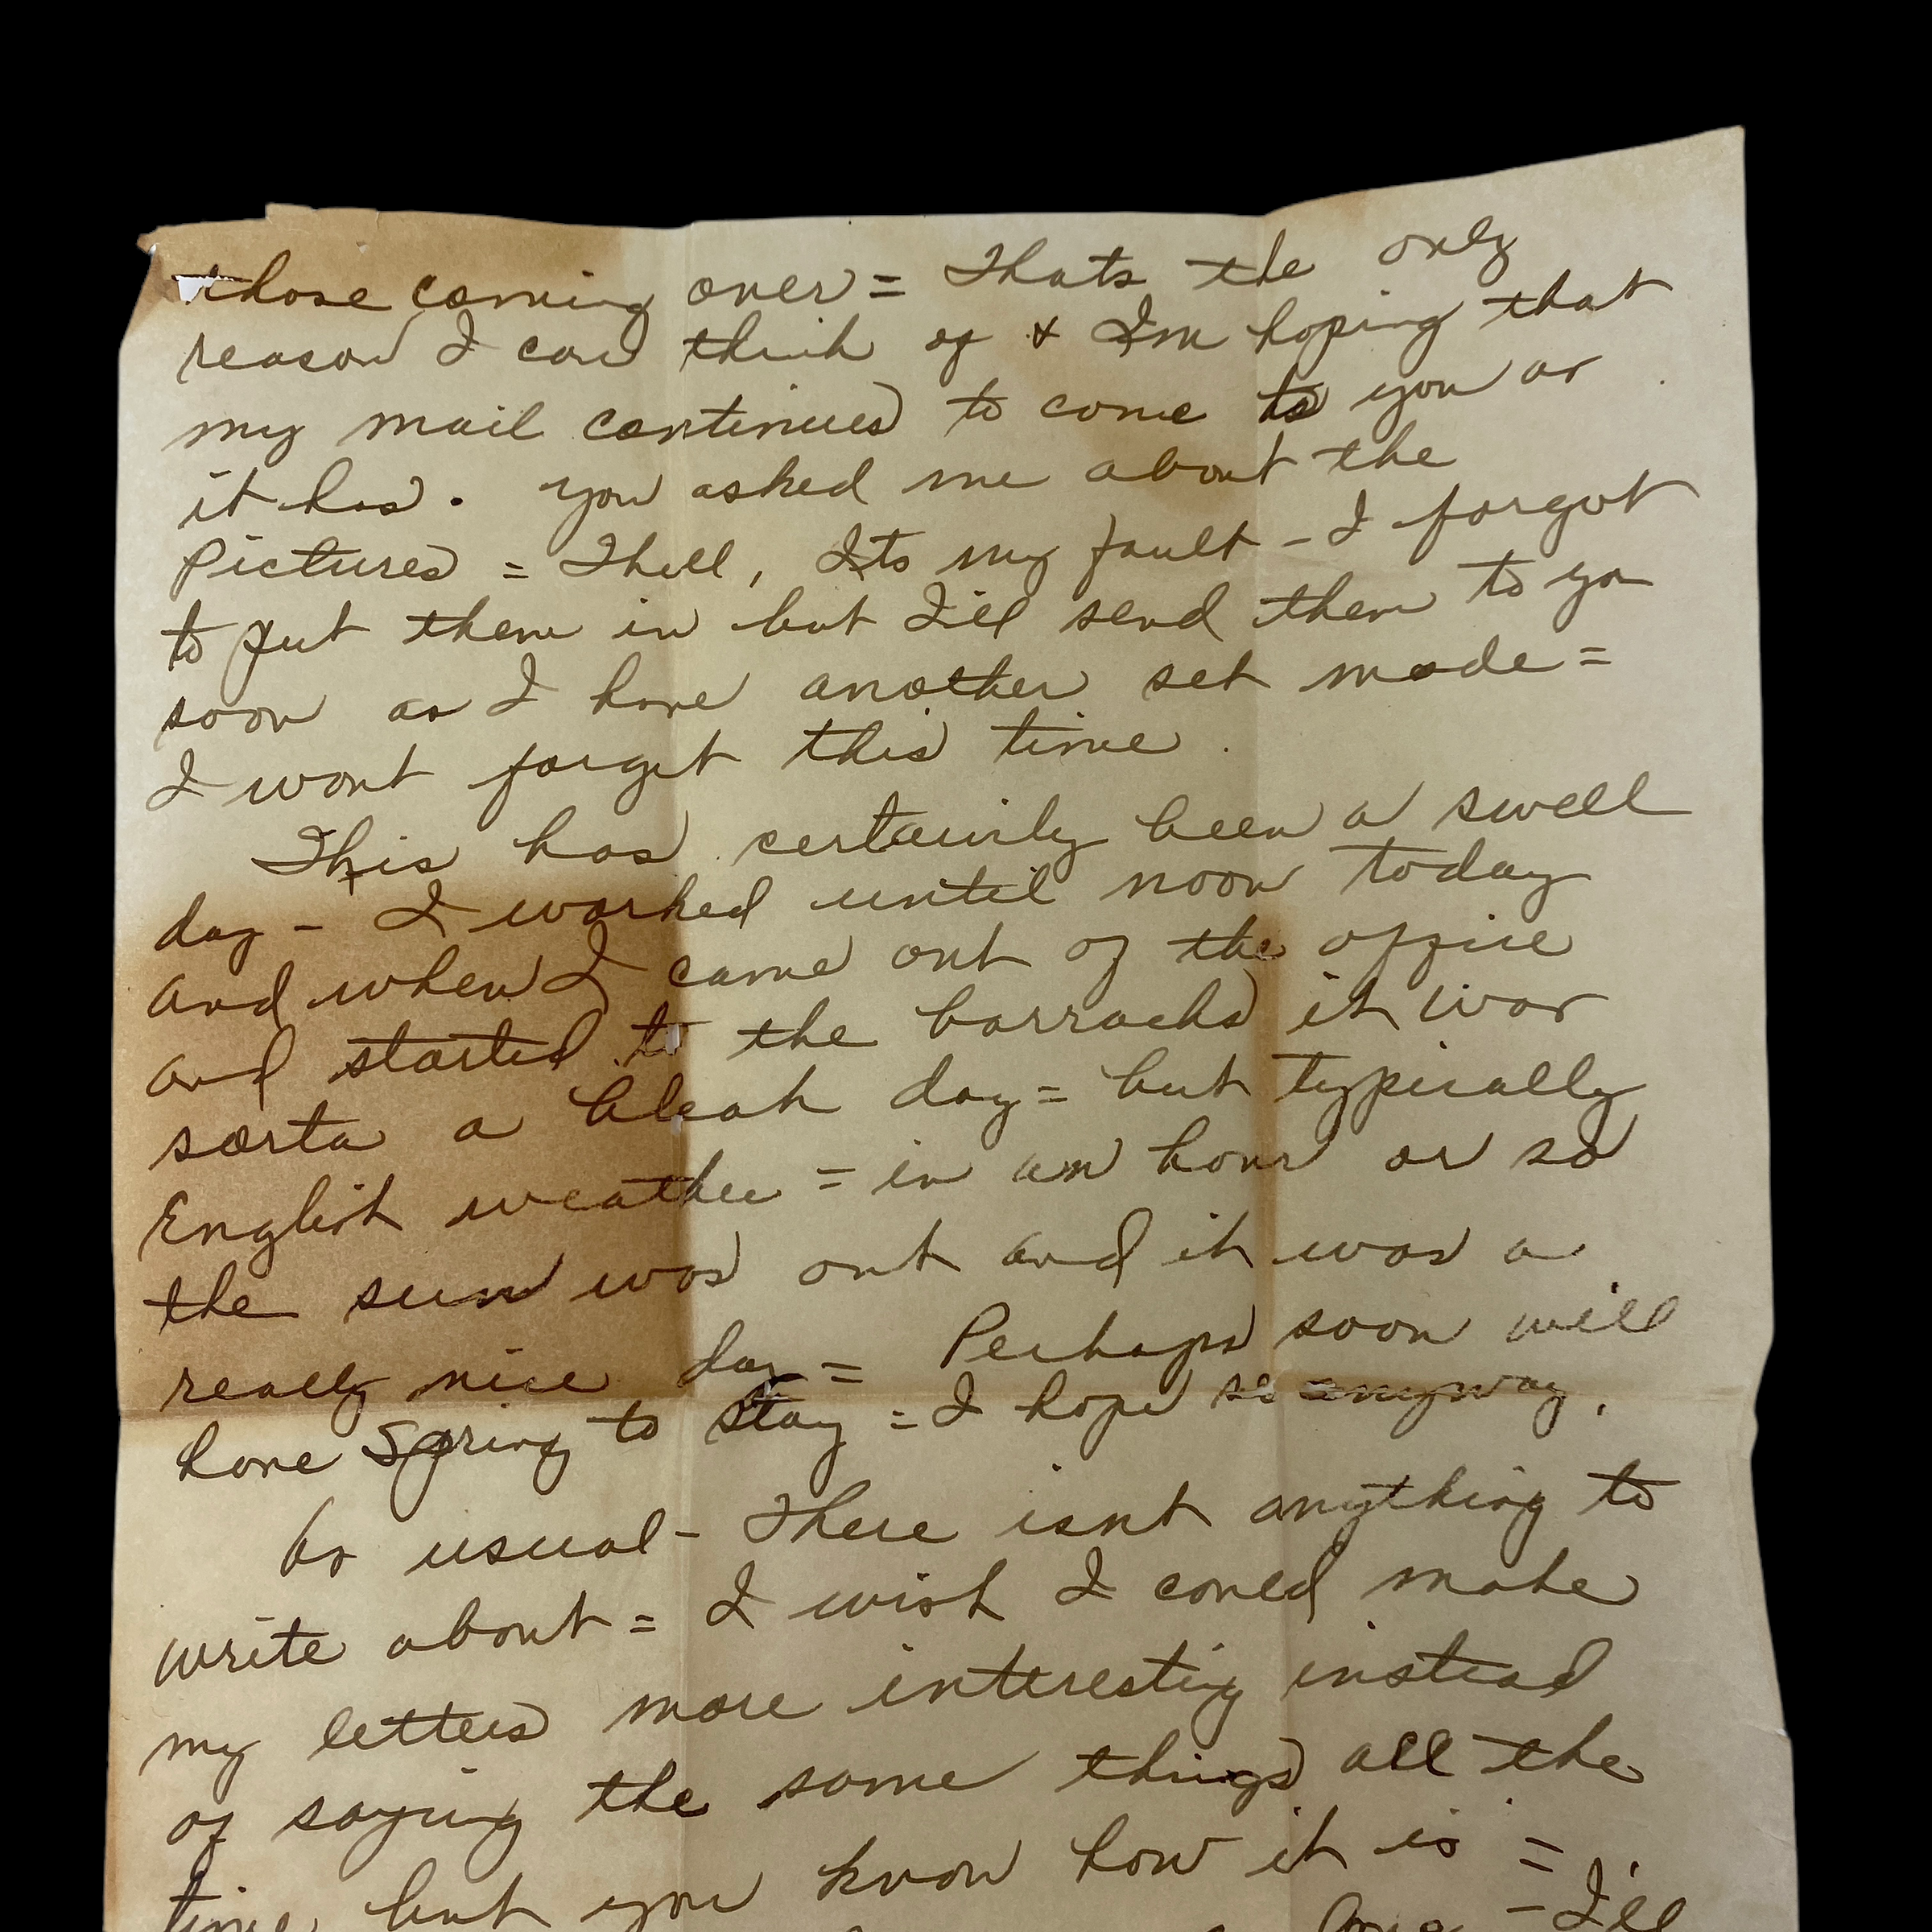 those coming over = Thats the only
reason I can think of & Im hoping that
my mail continues to come to you as
it has. You asked me about the
Pictures = Thell, Its my fault - I forgot
to put them in but I'll send them to you
soon as I have another set made =
I wont forget this time.
This has certainly been a swell
day - I worked until noon today
and when I came out of the office
and started to the barracks it was
sorta a bleak day = but typically
English weather = in an hour or so
the sun was out and it was a
really nice day = Perhaps soon will
have Spring to stay = I hope so anyway.
As usual - There isnt anything to
write about = I wish I could make
my letters more interesting instead
of saying the same things all the
time but you know how it is =
- I'll